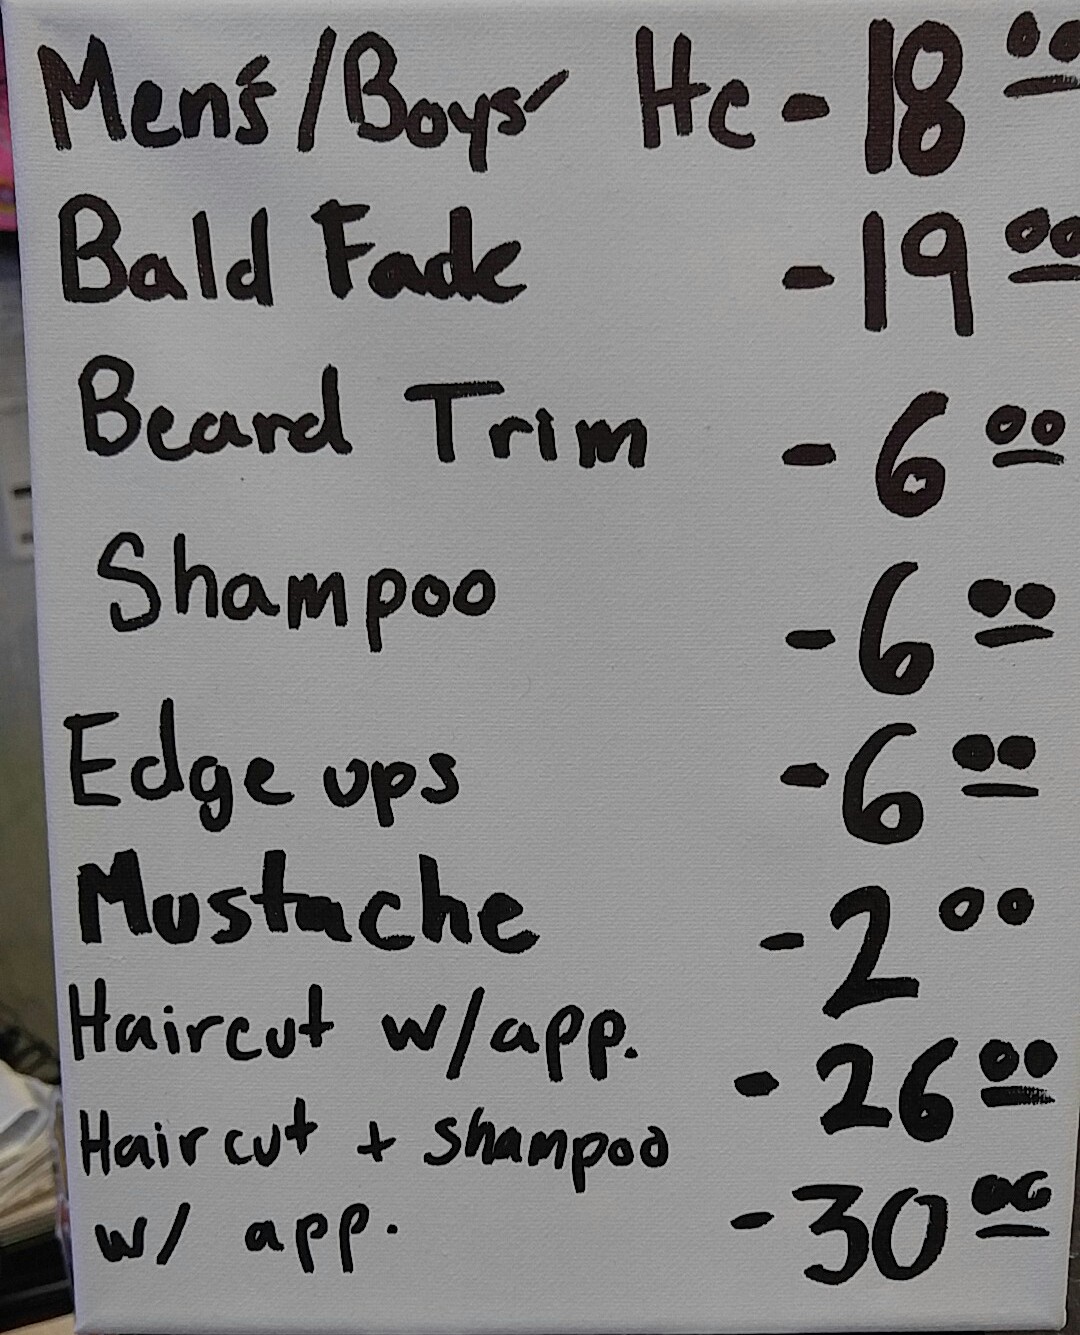 Men's/Boys' Hc - 18 00
Bald Fade - 19 00
Beard Trim - 6 00
Shampoo - 6 00
Edge ups - 6 00
Mustache - 2 00
Haircut w/app. - 26 00
Haircut + shampoo
w/ app. - 30 00